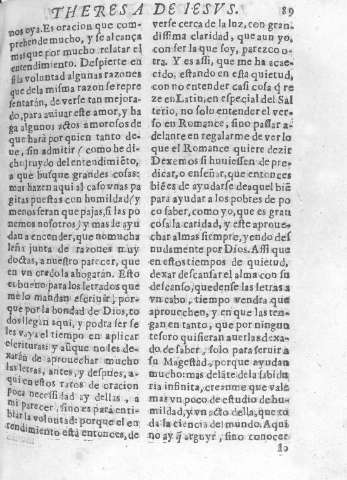 THERESA DE IESVS. 89
nos oya. Es oracion que com-
prehende mucho, y se alcança
mas que por mucho relatar el
entendimiento. Despierte en
si la voluntad algunas razones
que de la misma razon se repre
sentarán, de verse tan mejora-
do, para auiuar este amor, y ha
ga algunos actos amorosos de
que hará por quien tanto de-
ue, sin admitir / como he di-
cho) ruydo del entendimiẽto,
a que busque grandes cosas:
mas hazen aqui al caso vnas pa
gitas puestas con humildad / y
menos seran que pajas, si las po
nemos nosotros / y mas le ayu
dan a encender, que no mucha
leña junta de razones muy
doctas, a nuestro parecer, que
en vn credo la ahogarán. Esto
es bueno para los letrados que
me lo mandan escriuir, por-
que por la bondad de Dios, to
dos llegan aqui, y podra ser se
les vaya el tiempo en aplicar
escrituras: y aũque no les de-
xarán de aprouechar mucho
las letras, antes, y despues, a-
qui en estos ratos de oracion
poca necessidad ay dellas, a
mi parecer, sino es para enti-
biar la voluntad: porque el en
tendimiento está entonces, de
verse cerca de la luz, con gran
dissima claridad, que aun yo,
con ser la que soy, parezco o-
tra. Y es assi, que me ha acae-
cido, estando en esta quietud,
con no entender casi cosa q̃ re
ze en Latin, en especial del Sal
terio, no solo entender el ver-
so en Romance, sino passar a-
delante en regalarme de ver lo
que el Romance quiere dezir
Dexemos si huuiessen de pre-
dicar, o enseñar, que entonces
biẽ es de ayudarse de aquel biẽ
para ayudar a los pobres de po
co saber, como yo, que es gran
cosa la caridad, y este aproue-
char almas siempre, yendo des
nudamente por Dios. Assi que
en estos tiempos de quietud,
dexar descansar el alma con su
descanso, quedense las letras a
vn cabo, tiempo vendra que
aprouechen, y en que las ten-
gan en tanto, que por ningun
tesoro quisieran auerlas dexa-
do de saber, solo para seruir a
su Magestad, porque ayudan
mucho: mas delante de la sabidu
ria infinita, creanme que vale
mas vn poco de estudio de hu-
mildad, y vn acto della, que to
da la ciencia del mundo. Aqui
no ay q̃ arguyr, sino conocer
lo